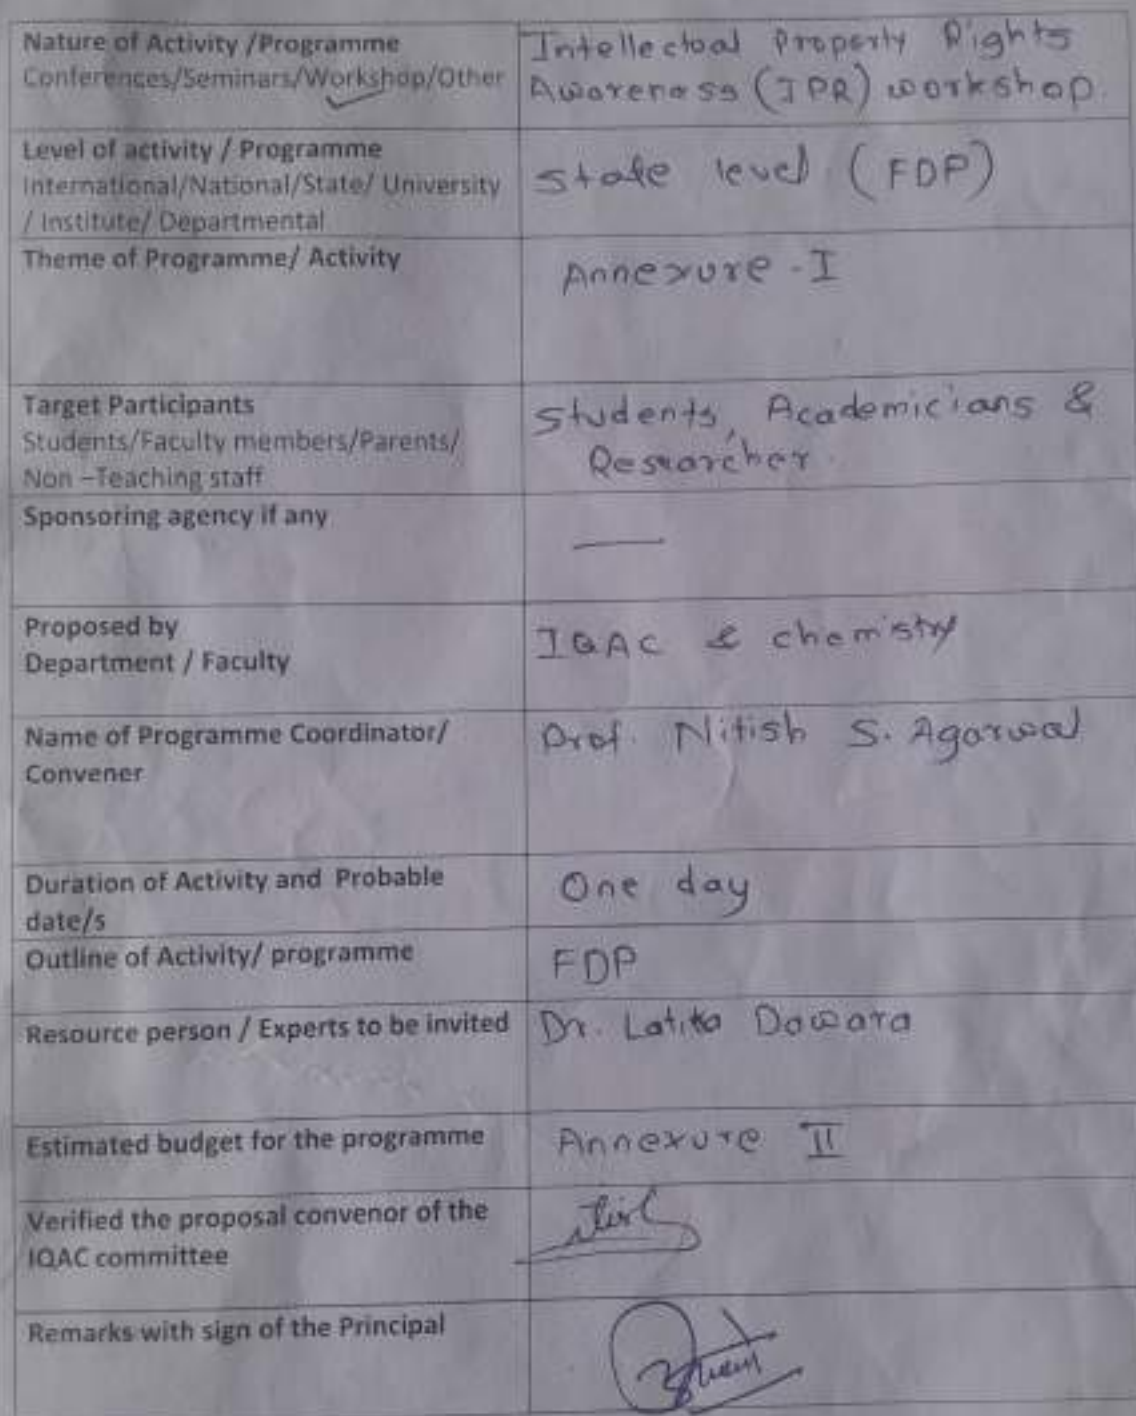 Nature of Activity /Programme
Conferences/Seminars/Workshop/Other
Intellectual Property Rights
Awareness (IPR) workshop.
Level of activity / Programme
International/National/State/ University
/ Institute/ Departmental
State level (FDP)
Theme of Programme/ Activity
Annexure - I
Target Participants
Students/Faculty members/Parents/
Non –Teaching staff
Students, Academicians &
Researcher.
Sponsoring agency if any
—
Proposed by
Department / Faculty
IQAC & chemistry
Name of Programme Coordinator/
Convener
Prof. Nitish S. Agarwal
Duration of Activity and Probable
date/s
One day
Outline of Activity/ programme
FDP
Resource person / Experts to be invited
Dr. Latika Dawara
Estimated budget for the programme
Annexure II
Verified the proposal convenor of the
IQAC committee
Remarks with sign of the Principal